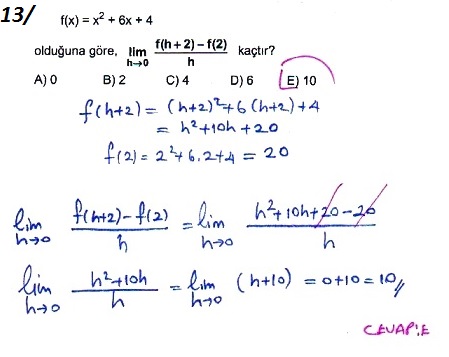 13/ f(x) = x² + 6x + 4
olduğuna göre, lim h→0 f(h + 2) – f(2) / h kaçtır?
A) 0 B) 2 C) 4 D) 6 E) 10
f(h+2) = (h+2)²+6(h+2)+4
= h²+10h+20
f(2) = 2²+6.2+4 = 20
lim h→0 f(h+2)-f(2) / h = lim h→0 h²+10h+20-20 / h
lim h→0 h²+10h / h = lim h→0 (h+10) = 0+10=10//
CEVAP:E